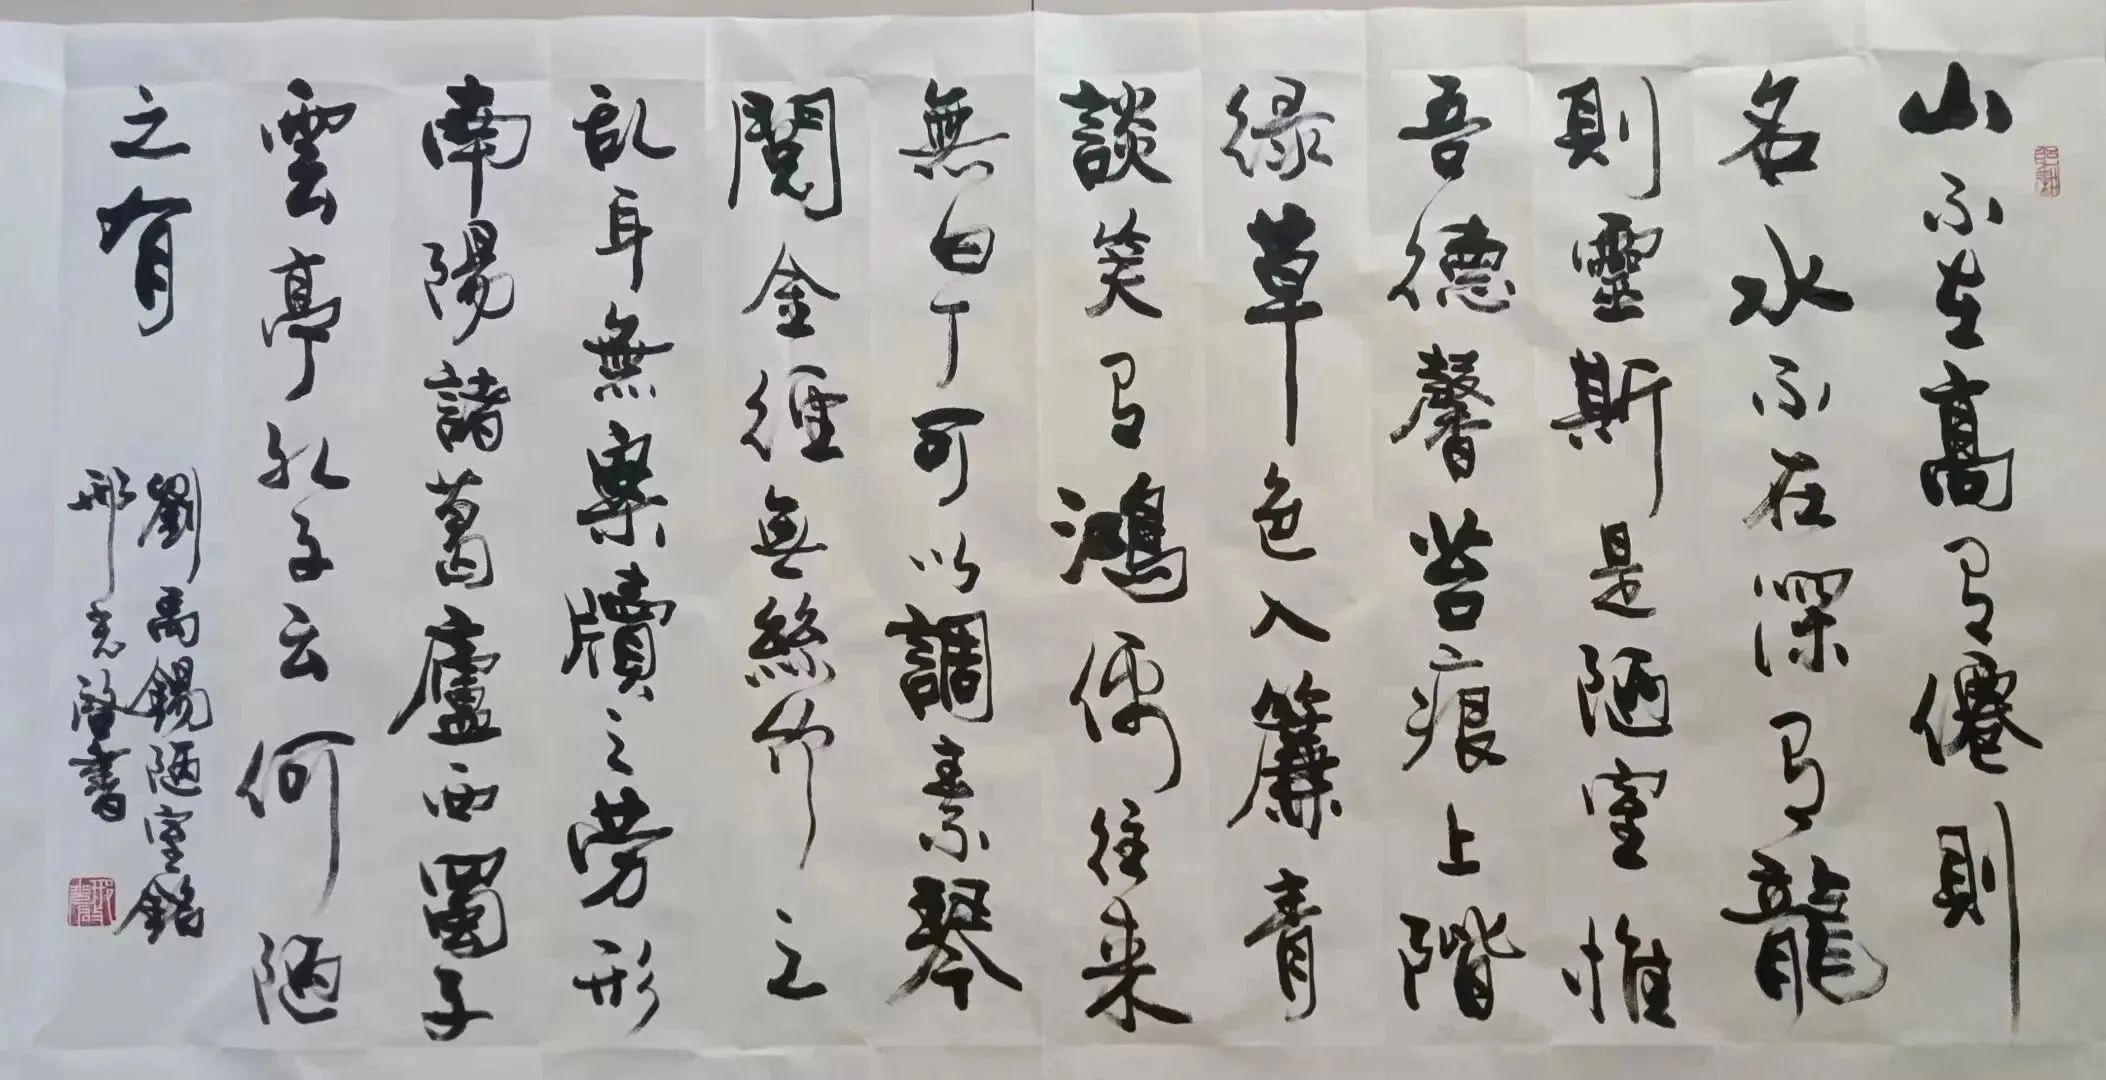 山不在高有僊則
名水不在深有龍
則靈斯是陋室惟
吾德馨苔痕上階
綠草色入簾青
談笑有鴻儒往来
無白丁可以調素琴
閱金經無絲竹之
乱耳無案牘之勞形
南陽諸葛廬西蜀子
雲亭孔子云何陋
之有
劉禹錫陋室銘
邢 啓書